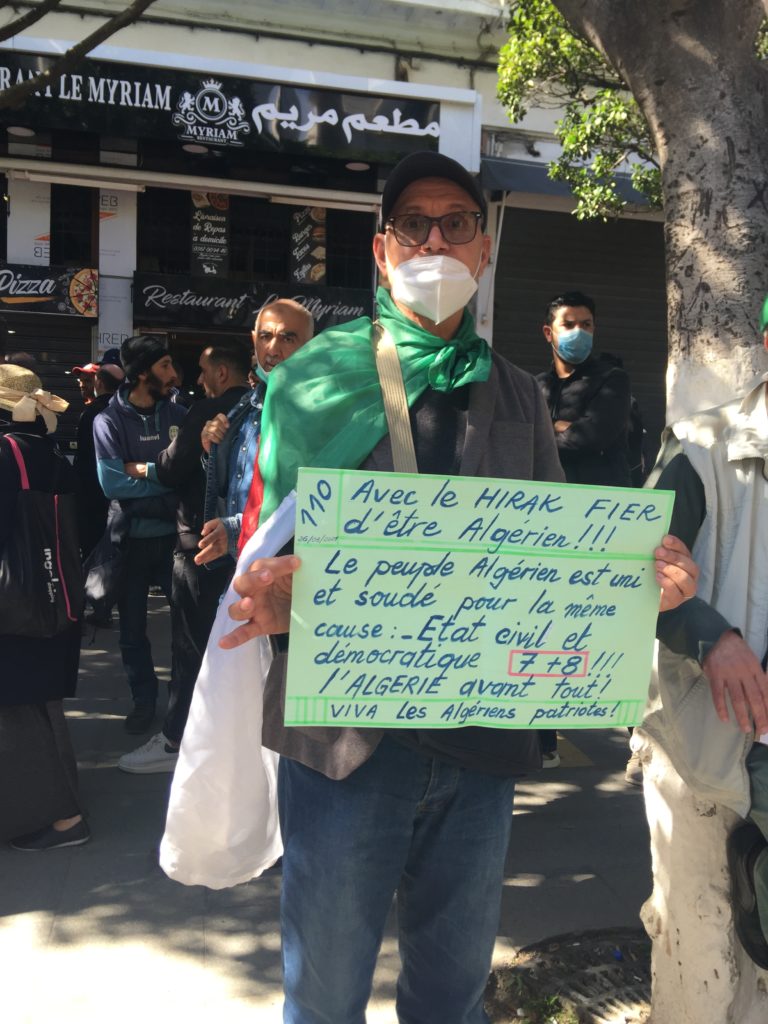 RANT LE MYRIAM
M
MYRIAM
RESTAURANT
مطعم مريم
Livraison
de Repas
a domicile
Pizza
Restaurant Le Myriam
110
Avec le HIRAK FIER
d'être Algérien!!!
Le peuple Algérien est uni
et soudé pour la même
cause:-Etat civil et
démocratique 7+8!!!
l'ALGERIE avant tout!
VIVA Les Algériens patriotes!